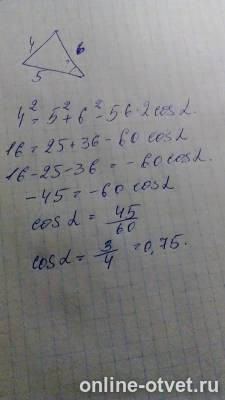 4 6
5
4² = 5² + 6² - 56·2cosα.
16 = 25 + 36 - 60 cosα
16 - 25 - 36 = - 60 cosα.
- 45 = - 60 cosα
cosα = 45/60
cosα = 3/4 = 0,75.
online-otvet.ru